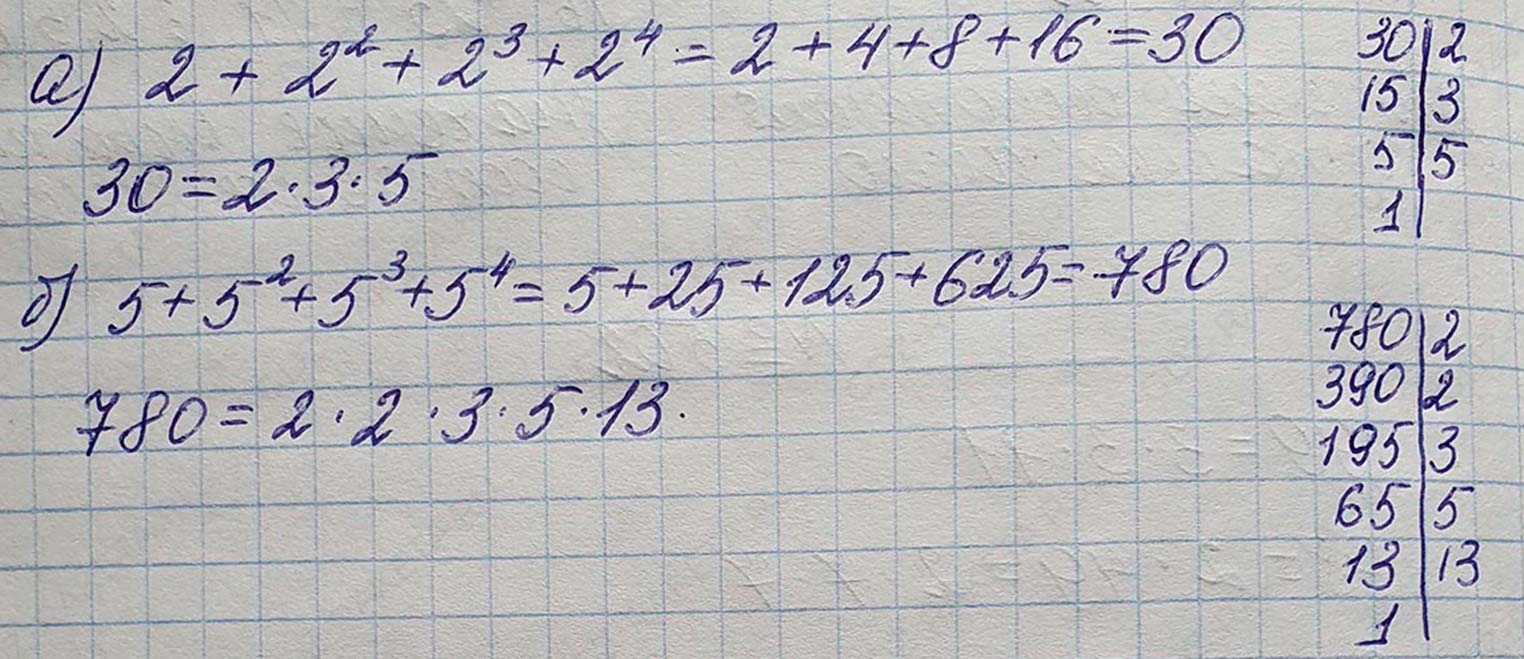 а) 2 + 2² + 2³ + 2⁴ = 2 + 4 + 8 + 16 = 30
30 = 2 · 3 · 5
30 | 2
15 | 3
5 | 5
1 |
б) 5 + 5² + 5³ + 5⁴ = 5 + 25 + 125 + 625 = 780
780 = 2 · 2 · 3 · 5 · 13.
780 | 2
390 | 2
195 | 3
65 | 5
13 | 13
1 |